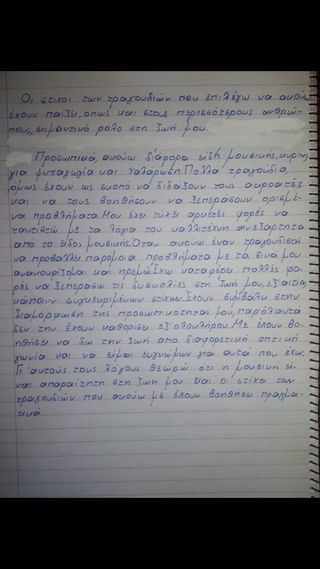 Οι στίχοι των τραγουδιών που επιλέγω να ακούω
έχουν παίξει, όπως και στους περισσότερους ανθρώ-
πους, σημαντικό ρόλο στη ζωή μου.
Προσωπικά, ακούω διάφορα είδη μουσικής, κυρίως
για ψυχαγωγία και χαλάρωση. Πολλά τραγούδια,
όμως έχουν ως σκοπό να διδάξουν τους ακροατές
και να τους βοηθήσουν να ξεπεράσουν ορισμέ-
να προβλήματα. Μου έχει τύχει αρκετές φορές να
ταυτιστώ με τα λόγια του καλλιτέχνη ανεξάρτητα
απο το είδος μουσικής. Όταν ακούω έναν τραγουδιστή
να προβάλλει παρόμοια προβλήματα με τα δικά μου
ανακουφίζομαι και ηρεμώ. Έχω καταφέρει πολλές φο-
ρές να ξεπεράσω τις δυσκολίες στη ζωή μου, εξαιτίας
κάποιων συγκεκριμένων στίχων. Έχουν συμβάλει στην
διαμόρφωση της προσωπικότητας μου, παρόλαυτά
δεν την έχουν καθορίσει εξ'ολοκλήρου. Με έχουν βο-
ηθήσει να δω την ζωή απο διαφορετική οπτική
γωνία και να είμαι ευγνώμων για αυτά που έχω.
Γι' αυτούς τους λόγους θεωρώ ότι η μουσική εί-
ναι απαραίτητη στη ζωή μου και οι στίχοι των
τραγουδιών που ακούω με έχουν βοηθήσει πραγμα-
τικά.